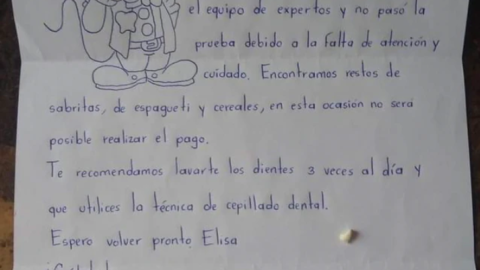 el equipo de expertos y no pasó la
prueba debido a la falta de atención y
cuidado. Encontramos restos de
sabritas, de espagueti y cereales, en esta ocasión no será
posible realizar el pago.
Te recomendamos lavarte los dientes 3 veces al día y
que utilices la técnica de cepillado dental.
Espero volver pronto Elisa